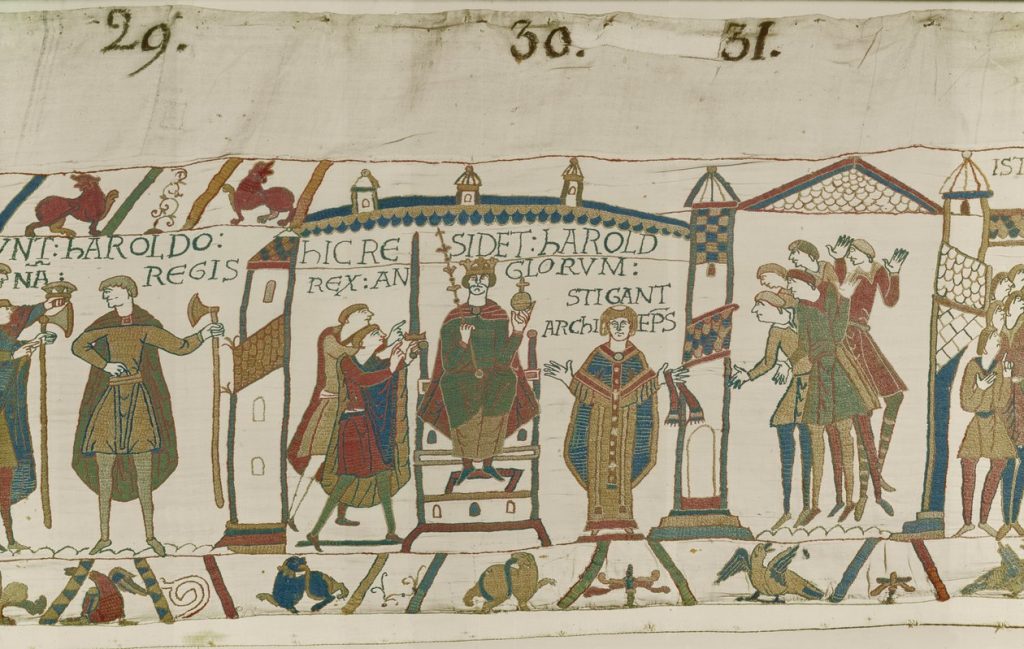 29. 30. 31.
VNT: hAROLDO:
NÃ: REGIS
hIC RE SIDET: hAROLD
REX: AN GLORVM:
STIGANT
ARChI EPS
IST